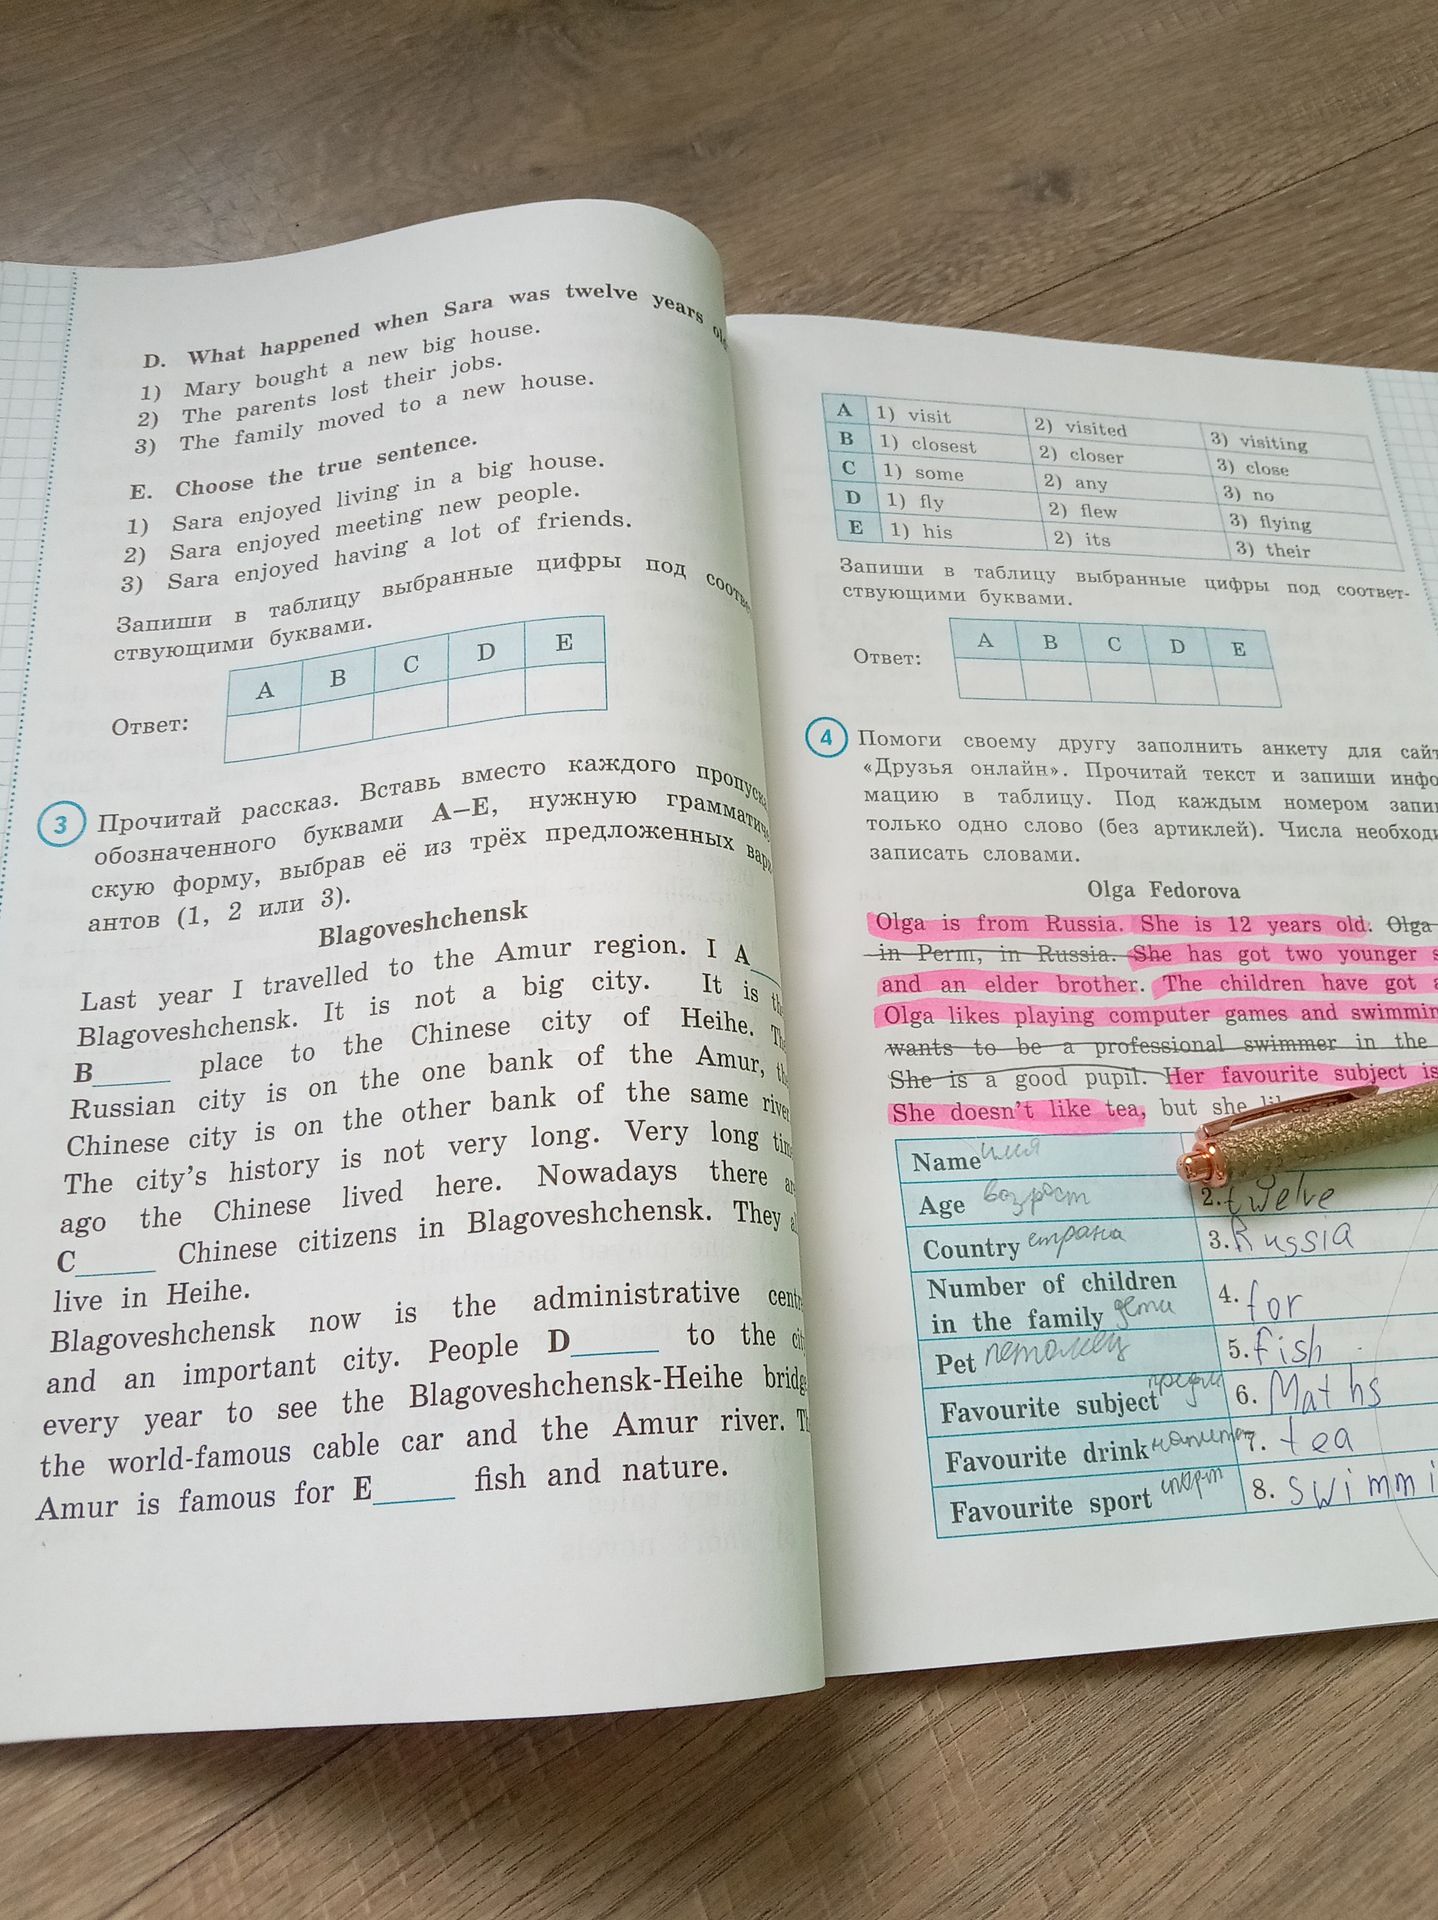 D. What happened when Sara was twelve years
1) Mary bought a new big house.
2) The parents lost their jobs.
3) The family moved to a new house.
E. Choose the true sentence.
1) Sara enjoyed living in a big house.
2) Sara enjoyed meeting new people.
3) Sara enjoyed having a lot of friends.
Запиши в таблицу выбранные цифры под соотве
ствующими буквами.
A B C D E
Ответ:
3 Прочитай рассказ. Вставь вместо каждого пропуск
обозначенного буквами A–E, нужную граммати
скую форму, выбрав её из трёх предложенных вар
антов (1, 2 или 3).
Blagoveshchensk
Last year I travelled to the Amur region. I A
Blagoveshchensk. It is not a big city. It is
B place to the Chinese city of Heihe.
Russian city is on the one bank of the Amur,
Chinese city is on the other bank of the same river
The city's history is not very long. Very long
ago the Chinese lived here. Nowadays there
C Chinese citizens in Blagoveshchensk. They
live in Heihe.
Blagoveshchensk now is the administrative centr
and an important city. People D to the
every year to see the Blagoveshchensk-Heihe bridg
the world-famous cable car and the Amur river.
Amur is famous for E fish and nature.
A 1) visit 2) visited 3) visiting
B 1) closest 2) closer 3) close
C 1) some 2) any 3) no
D 1) fly 2) flew 3) flying
E 1) his 2) its 3) their
Запиши в таблицу выбранные цифры под соответ-
ствующими буквами.
A B C D E
Ответ:
4 Помоги своему другу заполнить анкету для сайт
«Друзья онлайн». Прочитай текст и запиши инфо
мацию в таблицу. Под каждым номером запи
только одно слово (без артиклей). Числа необходи
записать словами.
Olga Fedorova
Olga is from Russia. She is 12 years old. Olga
in Perm, in Russia. She has got two younger s
and an elder brother. The children have got a
Olga likes playing computer games and swimmin
wants to be a professional swimmer in the
She is a good pupil. Her favourite subject is
She doesn't like tea, but she
Name имя
Age возраст 2. twelve
Country страна 3. Russia
Number of children
in the family дети 4. for
Pet питомец 5. fish
Favourite subject 6. Maths
Favourite drink 7. tea
Favourite sport спорт 8. swimmi